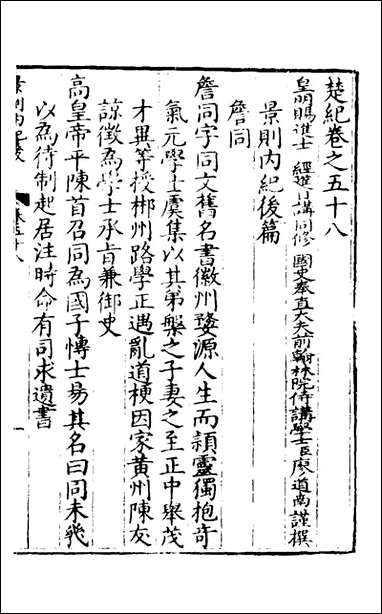 楚紀卷之五十八
皇明賜進士 經筵日講同修 國史奉直大夫前翰林院侍講學士臣廖道南謹撰
景則內紀後篇
詹同
詹同字同文舊名書徽州婺源人生而頴靈獨抱奇
氣元學士虞集以其弟槃之子妻之至正中舉茂
才異等授郴州路學正遇亂道梗因家黃州陳友
諒徵為學士承旨兼御史
高皇帝平陳首召同為國子博士易其名曰同未幾
以為待制起居注時命有司求遺書